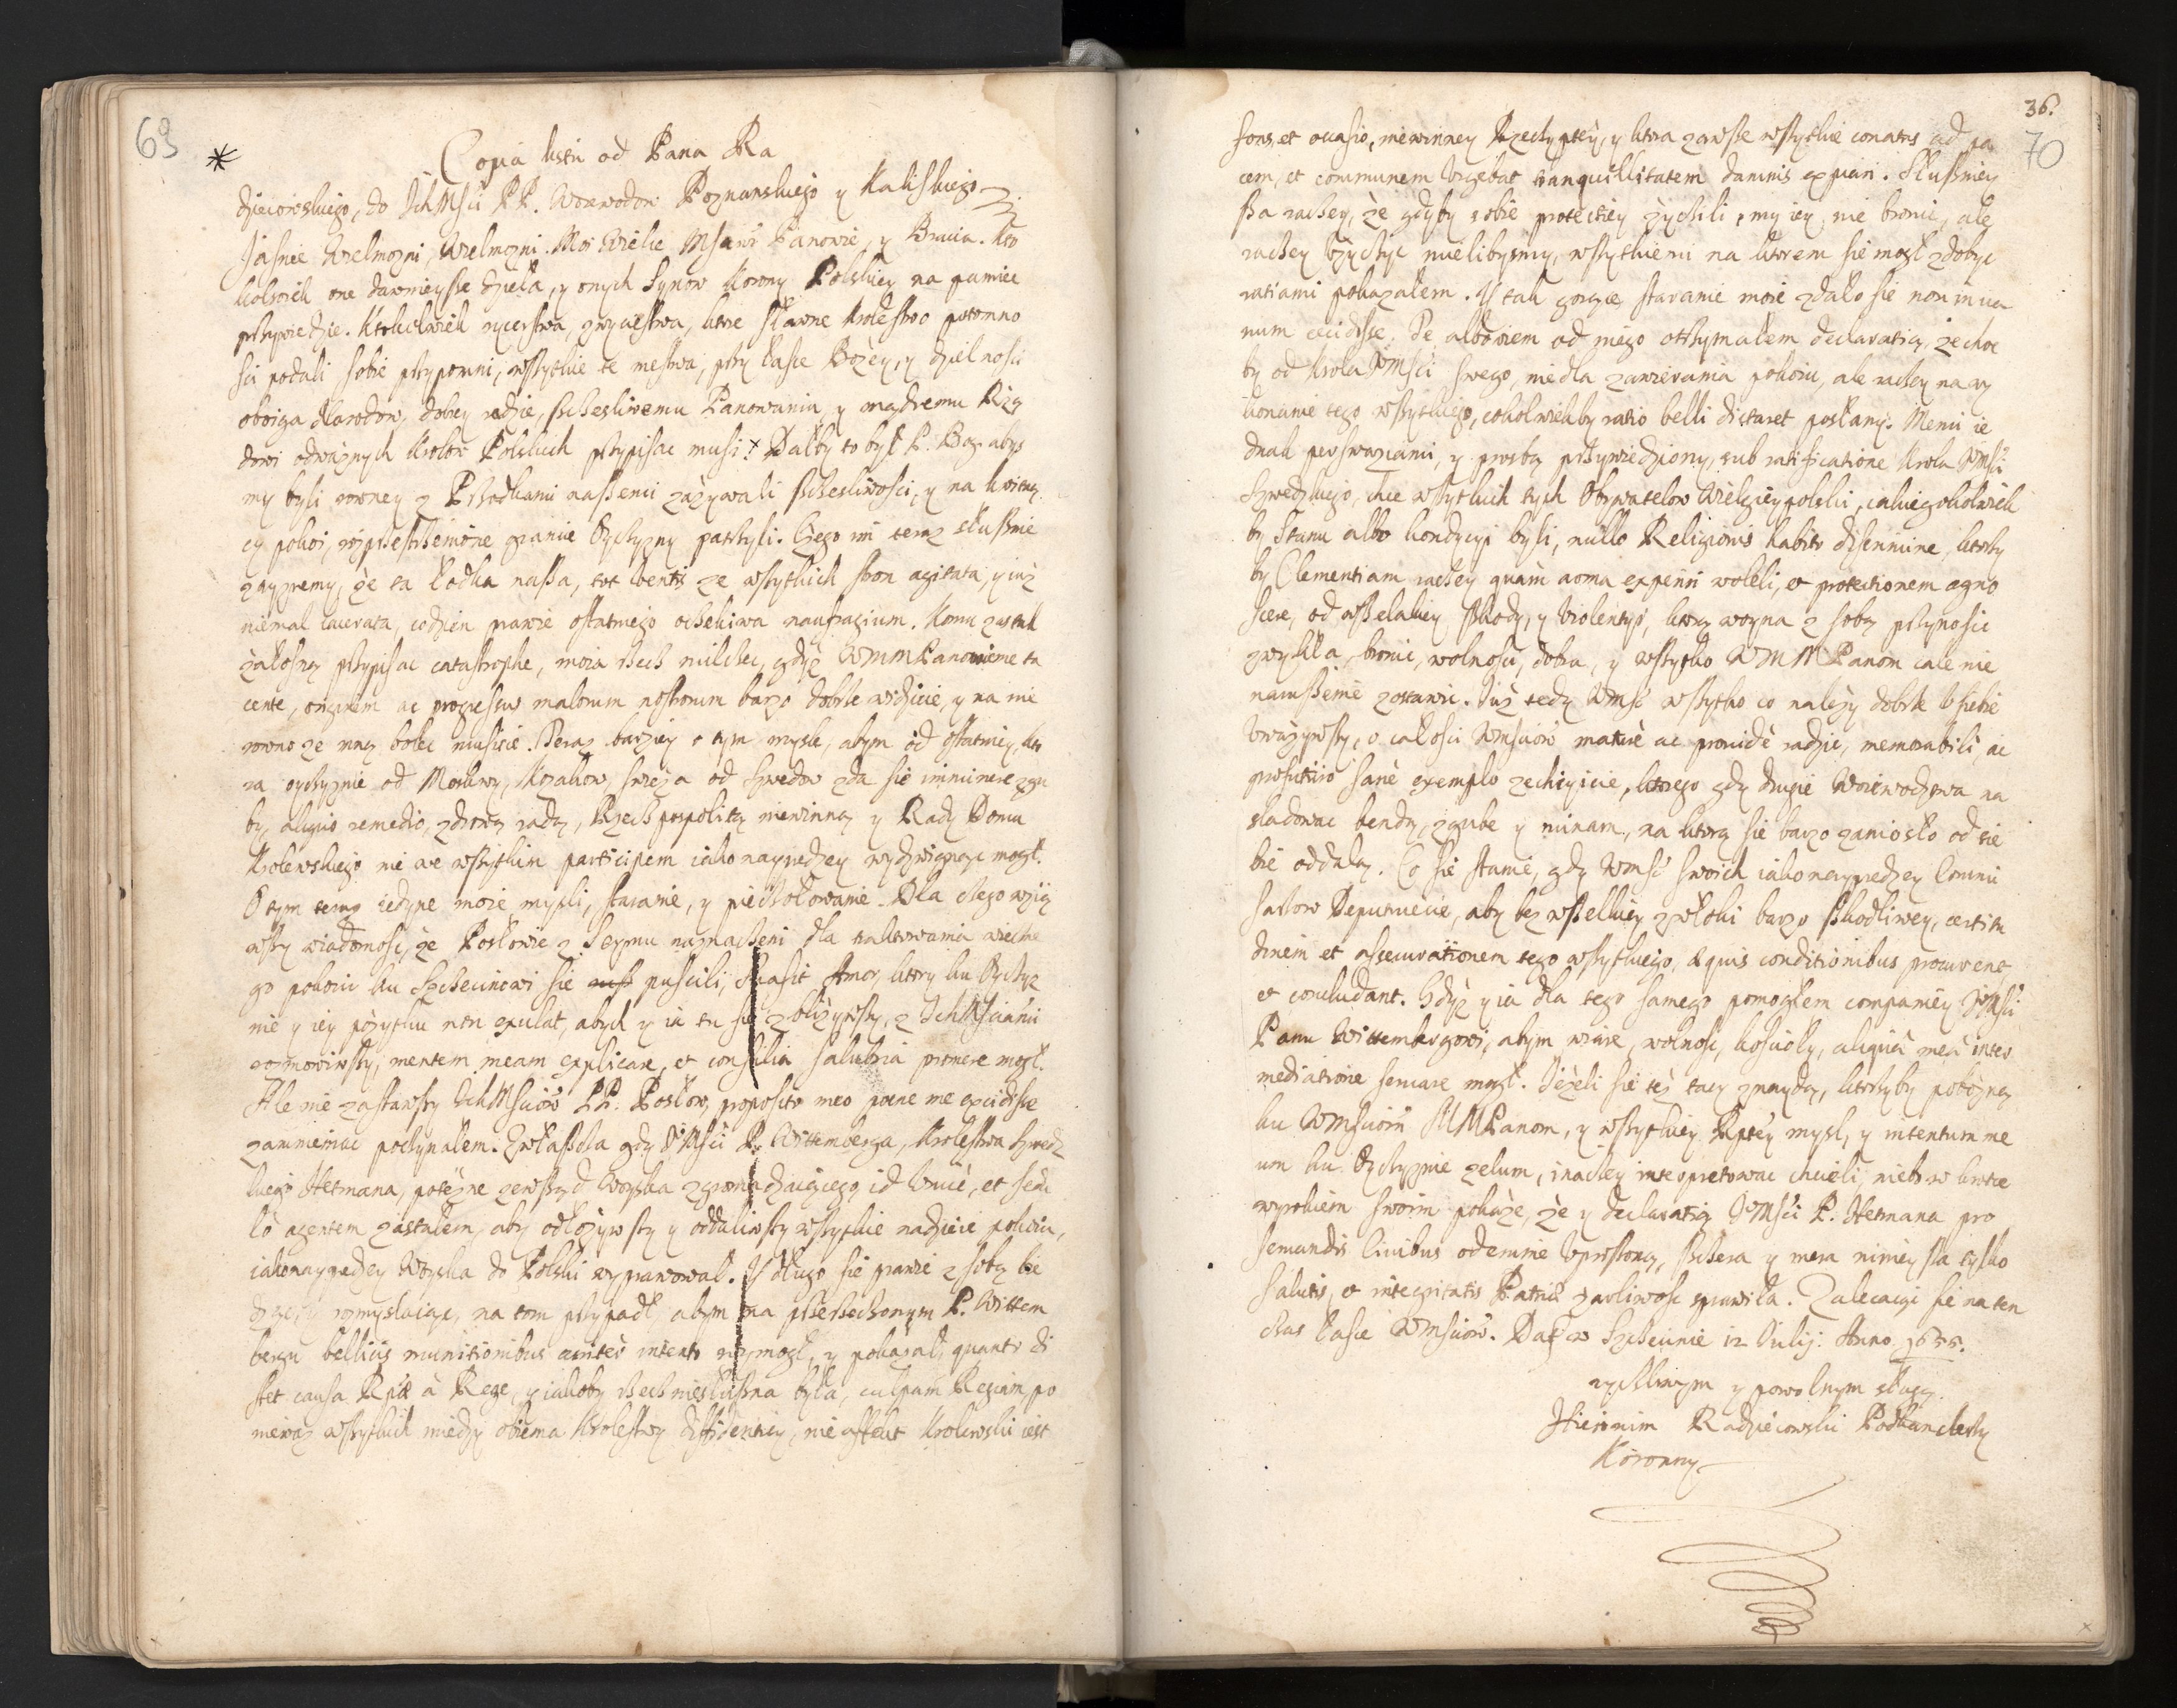 69
*
Copia listu od Pana Ra
dzieiowskiego, do IchMsci PP. Woiewodow Poznanskiego y Kaliskiego
Jasnie Wielmozni, Wielmozni Moi Wielce Msciwi Panowie, y Bracia. Kto
kolwiek one dawnieysse dzieła, y onych Synow Korony Polskiey na pamiec
przywiedzie. Ktokolwiek rycerstwa, zwyciestwa, ktore sławne Krolestwo potomno
sci podali sobie przypomni, wszytkie te mestwa, przy łasce Bozey, y dzielnosci
oboiga Narodow, dobrey radzie, sczesliwemu Panowaniu, y mądremu Rzą
dowi odważnych Krolow Polskich przypisac musi. Dałby to był P. Bog abys
my byli rowney z Przodkami nassemi zażywali sczesliwosci, y na kwitną
cy pokoi, rozprzestrzenione granice Oyczyzny patrzyli. Czego im teraz słusznie
zayzremy, że ta łodka nassa, tot ventis ze wszytkich stron agitata, y iuż
niemal lacerata, codzien prawie ostatniego oczekiwa naufragium. Komu za tak
żałosną przypisac catastrophe, moia rzecz milczec, gdyż WMMPanowie me ta
cente, originem ac progressus malorum nostrorum barzo dobrze widzicie, y na nie
rowno ze mną bolec musicie. Teraz bardziey o tym mysle, abym od ostatniey, kto
ra oyczyznie od Moskwy, Kozakow, swieża od Szwedow zda sie imminere zgu
by, aliquo remedio, zdrową radą, Rzeczpospolitą niewinną y Rady Domu
Krolewskiego nie we wszytkim participem iako nayprędzey wydzwignąc mogł.
O tym teraz iedyne moie mysli, staranie, y pieczołowanie. Dla czego wziąw
wszy wiadomosc, że Posłowie z Seymu naznaczeni dla traktowania wieczne
go pokoiu ku Szczecinowi sie puscili, suasit Amor, ktory ku Oyczyz
nie y iey pożytku non exulat, abych y ia tu sie zbliżywszy, z IchMsciami
rozmowiwszy, mentem meam explicare, et consilia salubria promere mogł.
Ale nie zastawszy IchMsciow PP. Posłow, proposito meo poene me excidisse
zamniemac poczynałem. Zwłaszcza gdy JeMsci P. Wittemberga, Krolestwa Szwedz
kiego Hetmana, potężne zewsząd Woyska zgromadzaiącego, id unicè, et sedu
lò agentem zastałem, aby odłożywszy y oddaliwszy wszytkie nadzieie pokoiu,
iakonayprędzey Woyska do Polski wyprawował. Y długo sie prawie z sobą bie
dząc, y rozmyslaiąc, na tom przypadł, abym na przerzeczonym P. Wittem
bergu bellicis munitionibus acriter intento wymogł, y pokazał, quanto di
stet causa Rptae à Rege, y iakoby rzecz niesłuszna była, culpam Regiam, po
niewaz wszytkich miedzy obiema Krolestwy diffidentiey, nie affekt Krolewski iest
36.
70
fons et occasio, niewinney Rzeczyptey, y ktora zawsze wszytkie conatus ad pa
cem, et communem urgebat tranquillitatem damnis expiari. Słuszniey
sza raczey, że gdyby sobie protectiey życzyli, my iey nie bronic, ale
raczey użyczyc mielibysmy, wszytkiemi na ktorem sie mogł zdobyc
ratiami pokazałem. Y tak gorące staranie moie zdało sie non in va
num cecidisse. Te albowiem od niego otrzymałem declaratią, że choc
by od Krola JMsci swego, nie dla zawierania pokoiu, ale raczey na wy
konanie tego wszytkiego, cokolwiekby ratio belli dictaret posłany. Memi ie
dnak perswaziami, y prosbą przywiedziony, sub ratificatione Krola JMsci
Szwedzkiego, chce wszytkich tych Obywatelow Wielgieypolski, iakiegokolwiek
by Stanu albo kondycyi byli, nullo Religionis habito discrimine, ktorzy
by Clementiam raczey quàm arma experiri woleli, et protectionem agno
scere, od wszelakiey szkody, y violentyi, ktorą woyna z sobą przynosic
zwykła bronic, wolnosci, dobra, y wszytko WMM Panom cale nie
naruszenie zostawic. Już tedy WMsc wszytko co należy dobrze u siebie
uważywszy, o całosci WMsciow maturè ac providè radzic, memorabili, ac
profuturo sanè exemplo zechcyicie, ktorego gdy drugie Woiewodztwa na
sladowac bendą, zgube y ruinam, na ktorą sie barzo zaniosło od sie
bie oddalą. Co sie stanie, gdy WMsc swoich iako nayprędzey Commi
sarzow Deputuiecie, aby bez wszelkiey zwłoki barzo szkodliwey, certitu
dinem et assecurationem tego wszytkiego, aequis conditionibus procurent
et concludant. Gdyż y ia dla tego samego pomogłem compagniey JeMsci
Panu Wittembergowi, abym wiare, wolnosc, koscioły, aliquà meà inter
mediatione servare mogł. Jeżeli sie też tacy znaydą, ktorzyby pobożną
ku WMsciom MMPanom, y wszytkiey Rptey mysl, y intentum me
um ku Oyczyznie zelum, inaczey interpretowac chcieli, niebo w krotce
wyrokiem swoim pokaże, że y declaratią JeMsci P. Hetmana pro
servandis Civibus odemnie uproszoną, szczera y mera nimiey sza tylko
salutis, et integritatis Patriae żarliwosc sprawiła. Zalecaiąc sie na ten
czas łasce WMsciow. Dat. w Szczecinie 12 Julij. Anno 1655.
zyczliwym y powolnym sługą.
Hieronim Radzieiowski Podkanclerzy
Koronny